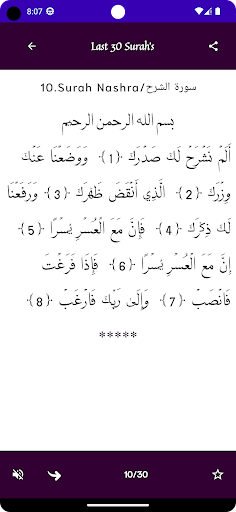 8:07
Last 30 Surah's
10.Surah Nashra/سورة الشرح
بسم الله الرحمن الرحيم
أَلَمْ نَشْرَحْ لَكَ صَدْرَكَ ﴿1﴾ وَوَضَعْنَا عَنْكَ
وِزْرَكَ ﴿2﴾ الَّذِي أَنْقَضَ ظَهْرَكَ ﴿3﴾ وَرَفَعْنَا
لَكَ ذِكْرَكَ ﴿4﴾ فَإِنَّ مَعَ الْعُسْرِ يُسْرًا ﴿5﴾
إِنَّ مَعَ الْعُسْرِ يُسْرًا ﴿6﴾ فَإِذَا فَرَغْتَ
فَانْصَبْ ﴿7﴾ وَإِلَىٰ رَبِّكَ فَارْغَبْ ﴿8﴾
*****
10/30